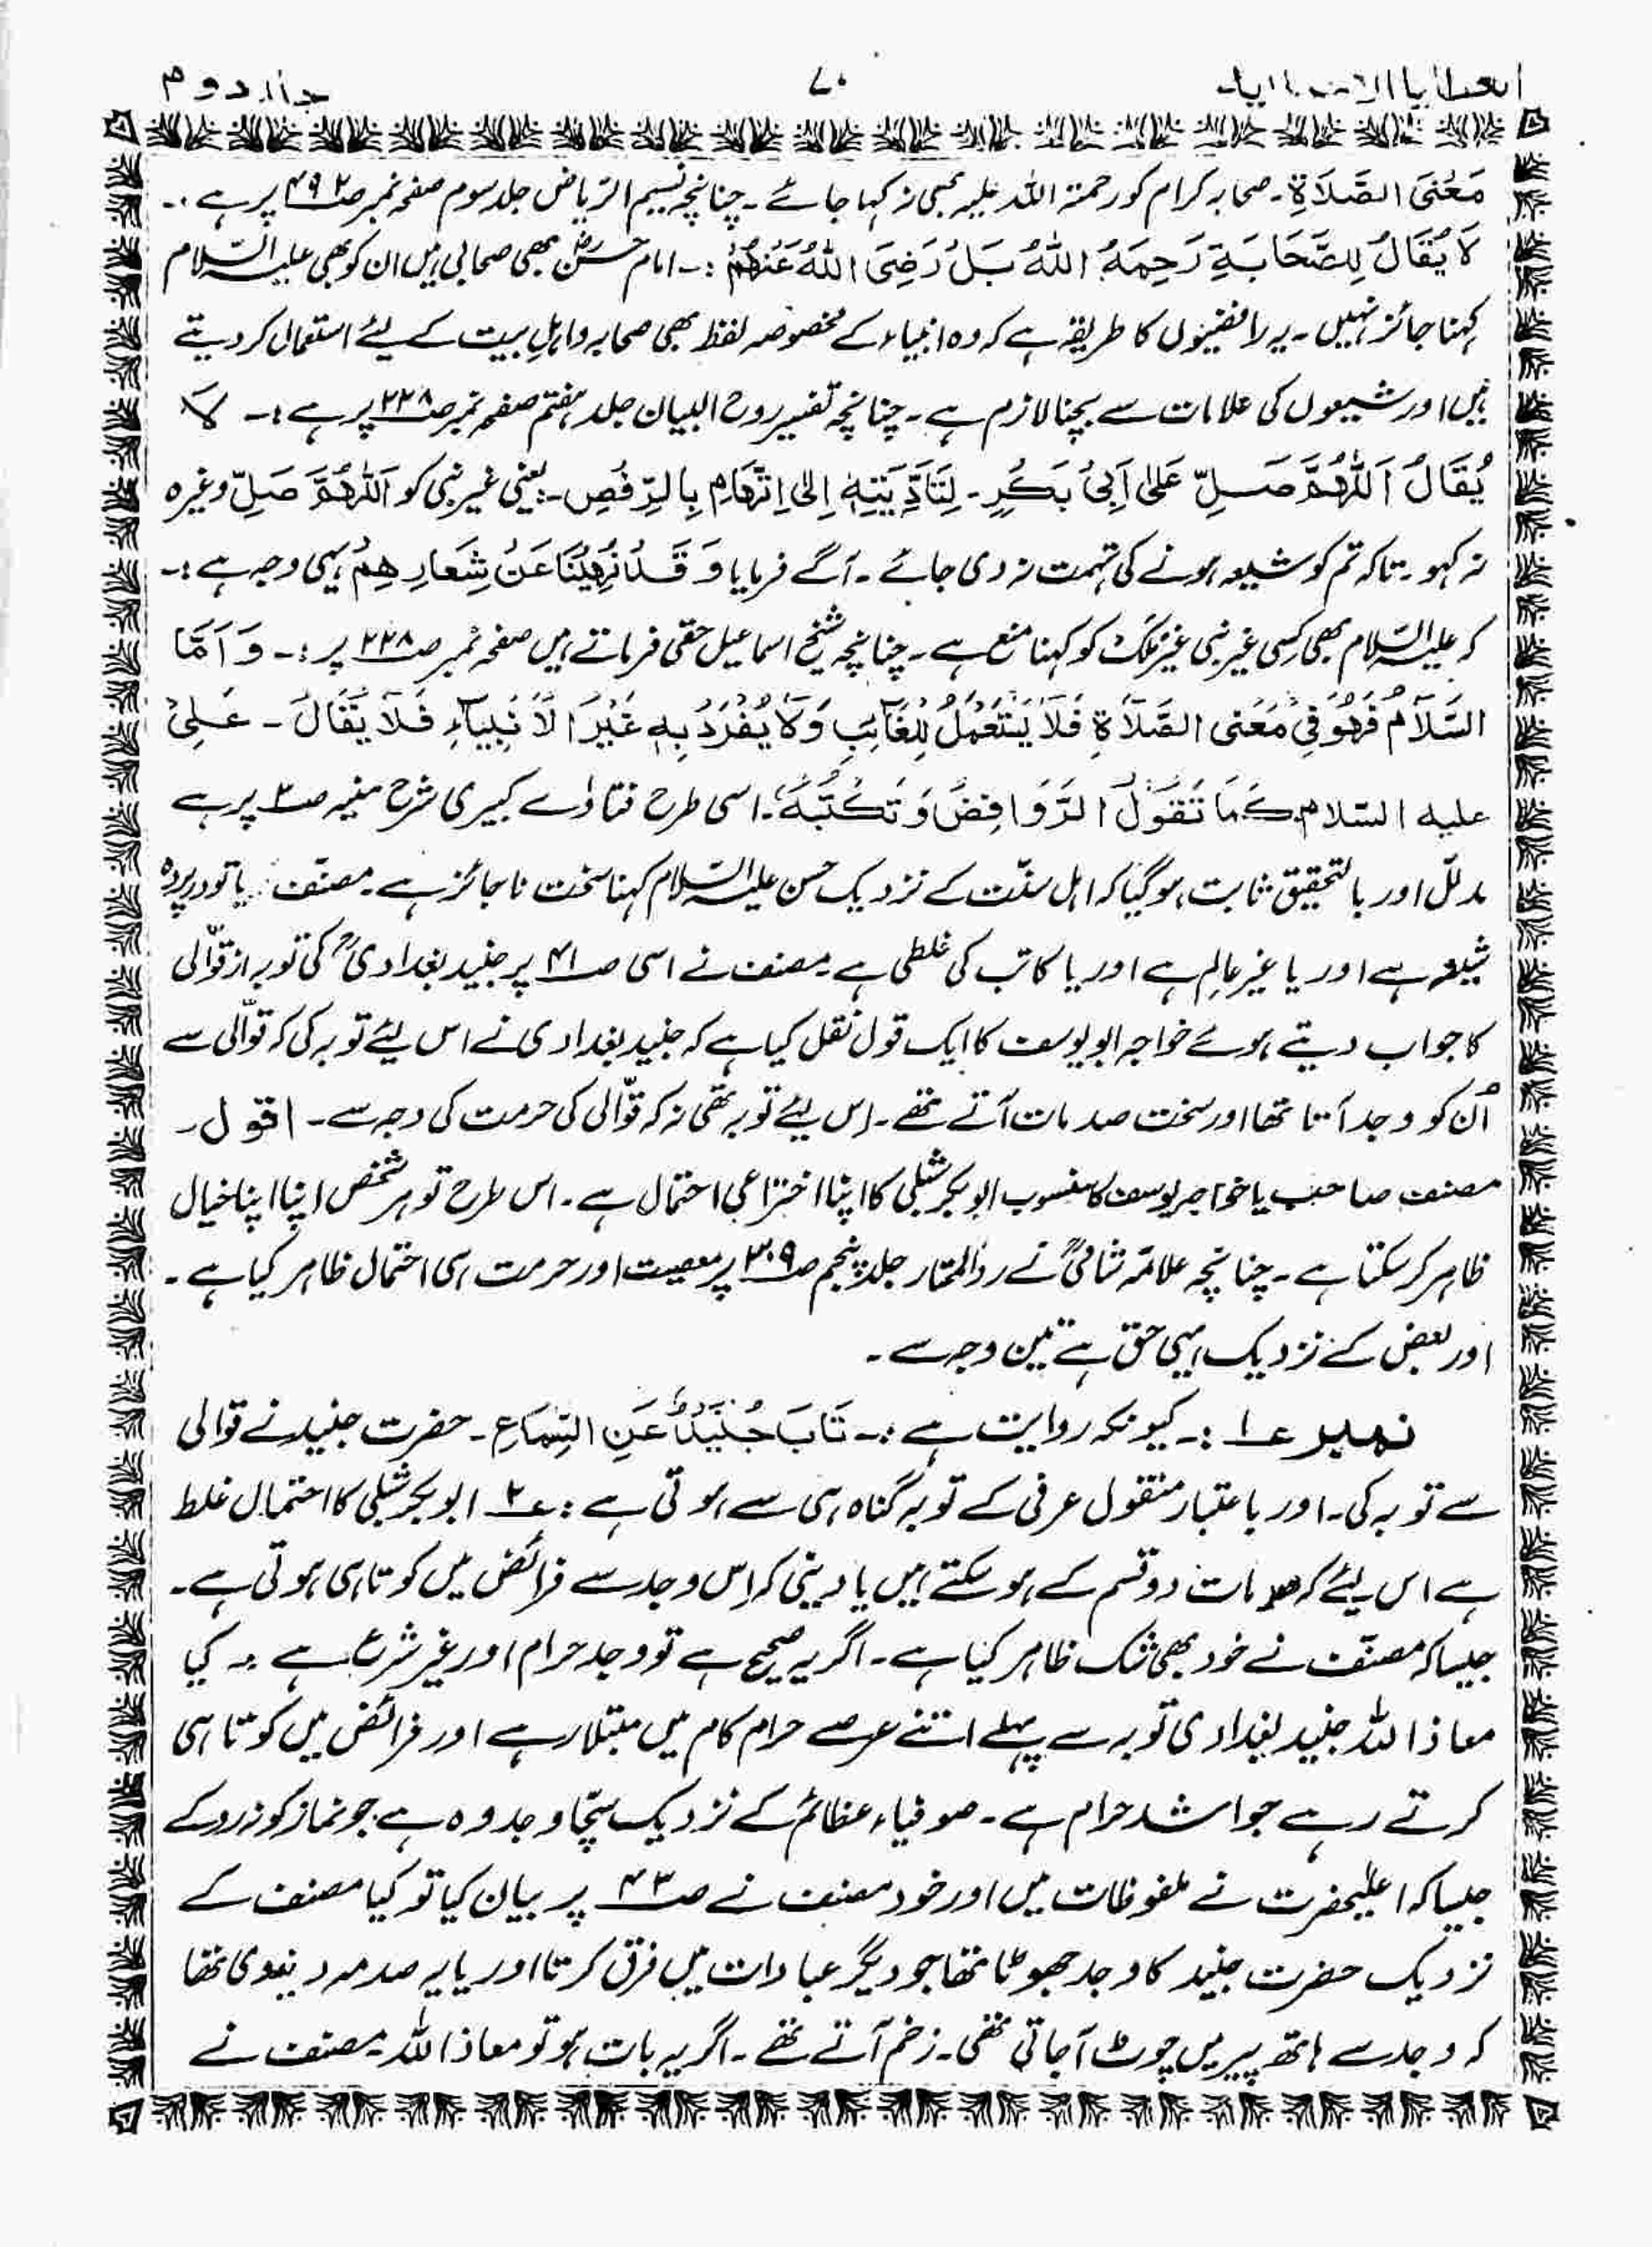 العطایا الاحمدیہ ۷۰ جلد دوم
مَعْنَی الصَّلَاةِ۔ صحابہ کرام کو رحمۃ اللہ علیہ بھی نہ کہا جائے۔ چنانچہ نسیم الریاض جلد سوم صفحہ نمبر صـ۴۹۲ پر ہے :۔
لَا یُقَالُ لِلصَّحَابَةِ رَحِمَهُ اللهُ بَلْ رَضِیَ اللهُ عَنْهُمْ :۔ امام حسنؓ بھی صحابی ہیں ان کو بھی علیہ السّلام
کہنا جائز نہیں۔ یہ رافضیوں کا طریقہ ہے کہ وہ انبیاء کے مخصوصہ لفظ بھی صحابہ و اہلِ بیت کے لیئے استعمال کر دیتے
ہیں اور شیعوں کی علامات سے بچنا لازم ہے۔ چنانچہ تفسیر روح البیان جلد ہفتم صفحہ نمبر صـ۲۲۸ پر ہے :۔ لَا
یُقَالُ اَللّٰهُمَّ صَلِّ عَلیٰ اَبِیْ بَکْرٍ۔ لِتَادِّیَتِهٖ اِلیٰ اِتِّهَامِ بِالرِّفْضِ۔ یعنی غیر نبی کو اَللّٰهُمَّ صَلِّ وغیرہ
نہ کہو۔ تاکہ تم کو شیعہ ہونے کی تہمت نہ دی جائے۔ آگے فرمایا وَ قَدْ نُهِیْنَا عَنْ شِعَارِهِمْ یہی وجہ ہے :۔
کہ علیہ السّلام بھی کسی غیر نبی غیر مَلَک کو کہنا منع ہے۔ چنانچہ شیخ اسماعیل حقی فرماتے ہیں صفحہ نمبر صـ۲۲۸ پر :۔ وَ اَمَّا
السَّلَامُ فَهُوَ فِیْ مَعْنَی الصَّلَاةِ فَلَا یُسْتَعْمَلُ لِلْغَائِبِ وَلَا یُفْرَدُ بِهٖ غَیْرَ الْاَنْبِیَاءِ فَلَا یُقَالُ۔ عَلِیْ
علیه السّلام کَمَا تَقُوْلُ الرَّوَافِضُ وَ تَکْتُبُهٗ۔ اسی طرح فتاوٰے کبیری شرح منیہ صـ۳ پر ہے
مدلّل اور بالتحقیق ثابت ہو گیا کہ اہل سنّت کے نزدیک حسن علیہ السّلام کہنا سخت ناجائز ہے۔ مصنّف یا تو در پردہ
شیعہ ہے اور یا غیر عالِم ہے اور یا کاتب کی غلطی ہے۔ مصنف نے اسی صـ۴۱ پر جنید بغدادیؒ کی توبہ از قوّالی
کا جواب دیتے ہوئے خواجہ ابو یوسف کا ایک قول نقل کیا ہے کہ جنید بغدادی نے اس لیئے توبہ کی کہ قوّالی سے
اُن کو وجد آتا تھا اور سخت صدمات آتے تھے۔ اِس لیئے توبہ تھی نہ کہ قوّالی کی حرمت کی وجہ سے۔ اقول۔
مصنف صاحب یا خواجہ یوسف کا منسوب ابو بکر شبلی کا اپنا اختراعی احتمال ہے۔ اس طرح تو ہر شخص اپنا اپنا خیال
ظاہر کر سکتا ہے۔ چنانچہ علامہ شامیؒ نے ردّالمحتار جلد پنجم صـ۳۰۹ پر معصیت اور حرمت ہی احتمال ظاہر کیا ہے۔
اور بعض کے نزدیک یہی حق ہے تین وجہ سے۔
نمبر ۱ :۔ کیونکہ روایت ہے :۔ تَابَ جُنَیْدٌ عَنِ السِّمَاعِ۔ حضرت جنید نے قوالی
سے توبہ کی۔ اور باعتبار منقول عرفی کے توبہ گناہ ہی سے ہوتی ہے : ۲ ابو بکر شبلی کا احتمال غلط
ہے اس لیئے کہ صدمات دو قسم کے ہو سکتے ہیں یا دینی کہ اِس وجد سے فرائض میں کوتاہی ہوتی ہے۔
جیسا کہ مصنّف نے خود بھی شک ظاہر کیا ہے۔ اگر یہ صحیح ہے تو وجد حرام اور غیر شرع ہے۔ کیا
معاذ اللہ جنید بغدادی توبہ سے پہلے اتنے عرصے حرام کام میں مبتلا رہے اور فرائض میں کوتاہی
کرتے رہے جو اشد حرام ہے۔ صوفیاء عظامؒ کے نزدیک سچّا وجد وہ ہے جو نماز کو نہ روکے
جیسا کہ اعلیٰحضرت نے ملفوظات میں اور خود مصنف نے صـ۴۳ پر بیان کیا تو کیا مصنف کے
نزدیک حضرت جنید کا وجد جھوٹا تھا جو دیگر عبادات میں فرق کرتا اور یا یہ صدمہ دنیوی تھا
کہ وجد سے ہاتھ پیر میں چوٹ آ جاتی تھی۔ زخم آتے تھے۔ اگر یہ بات ہو تو معاذ اللہ۔ مصنف نے